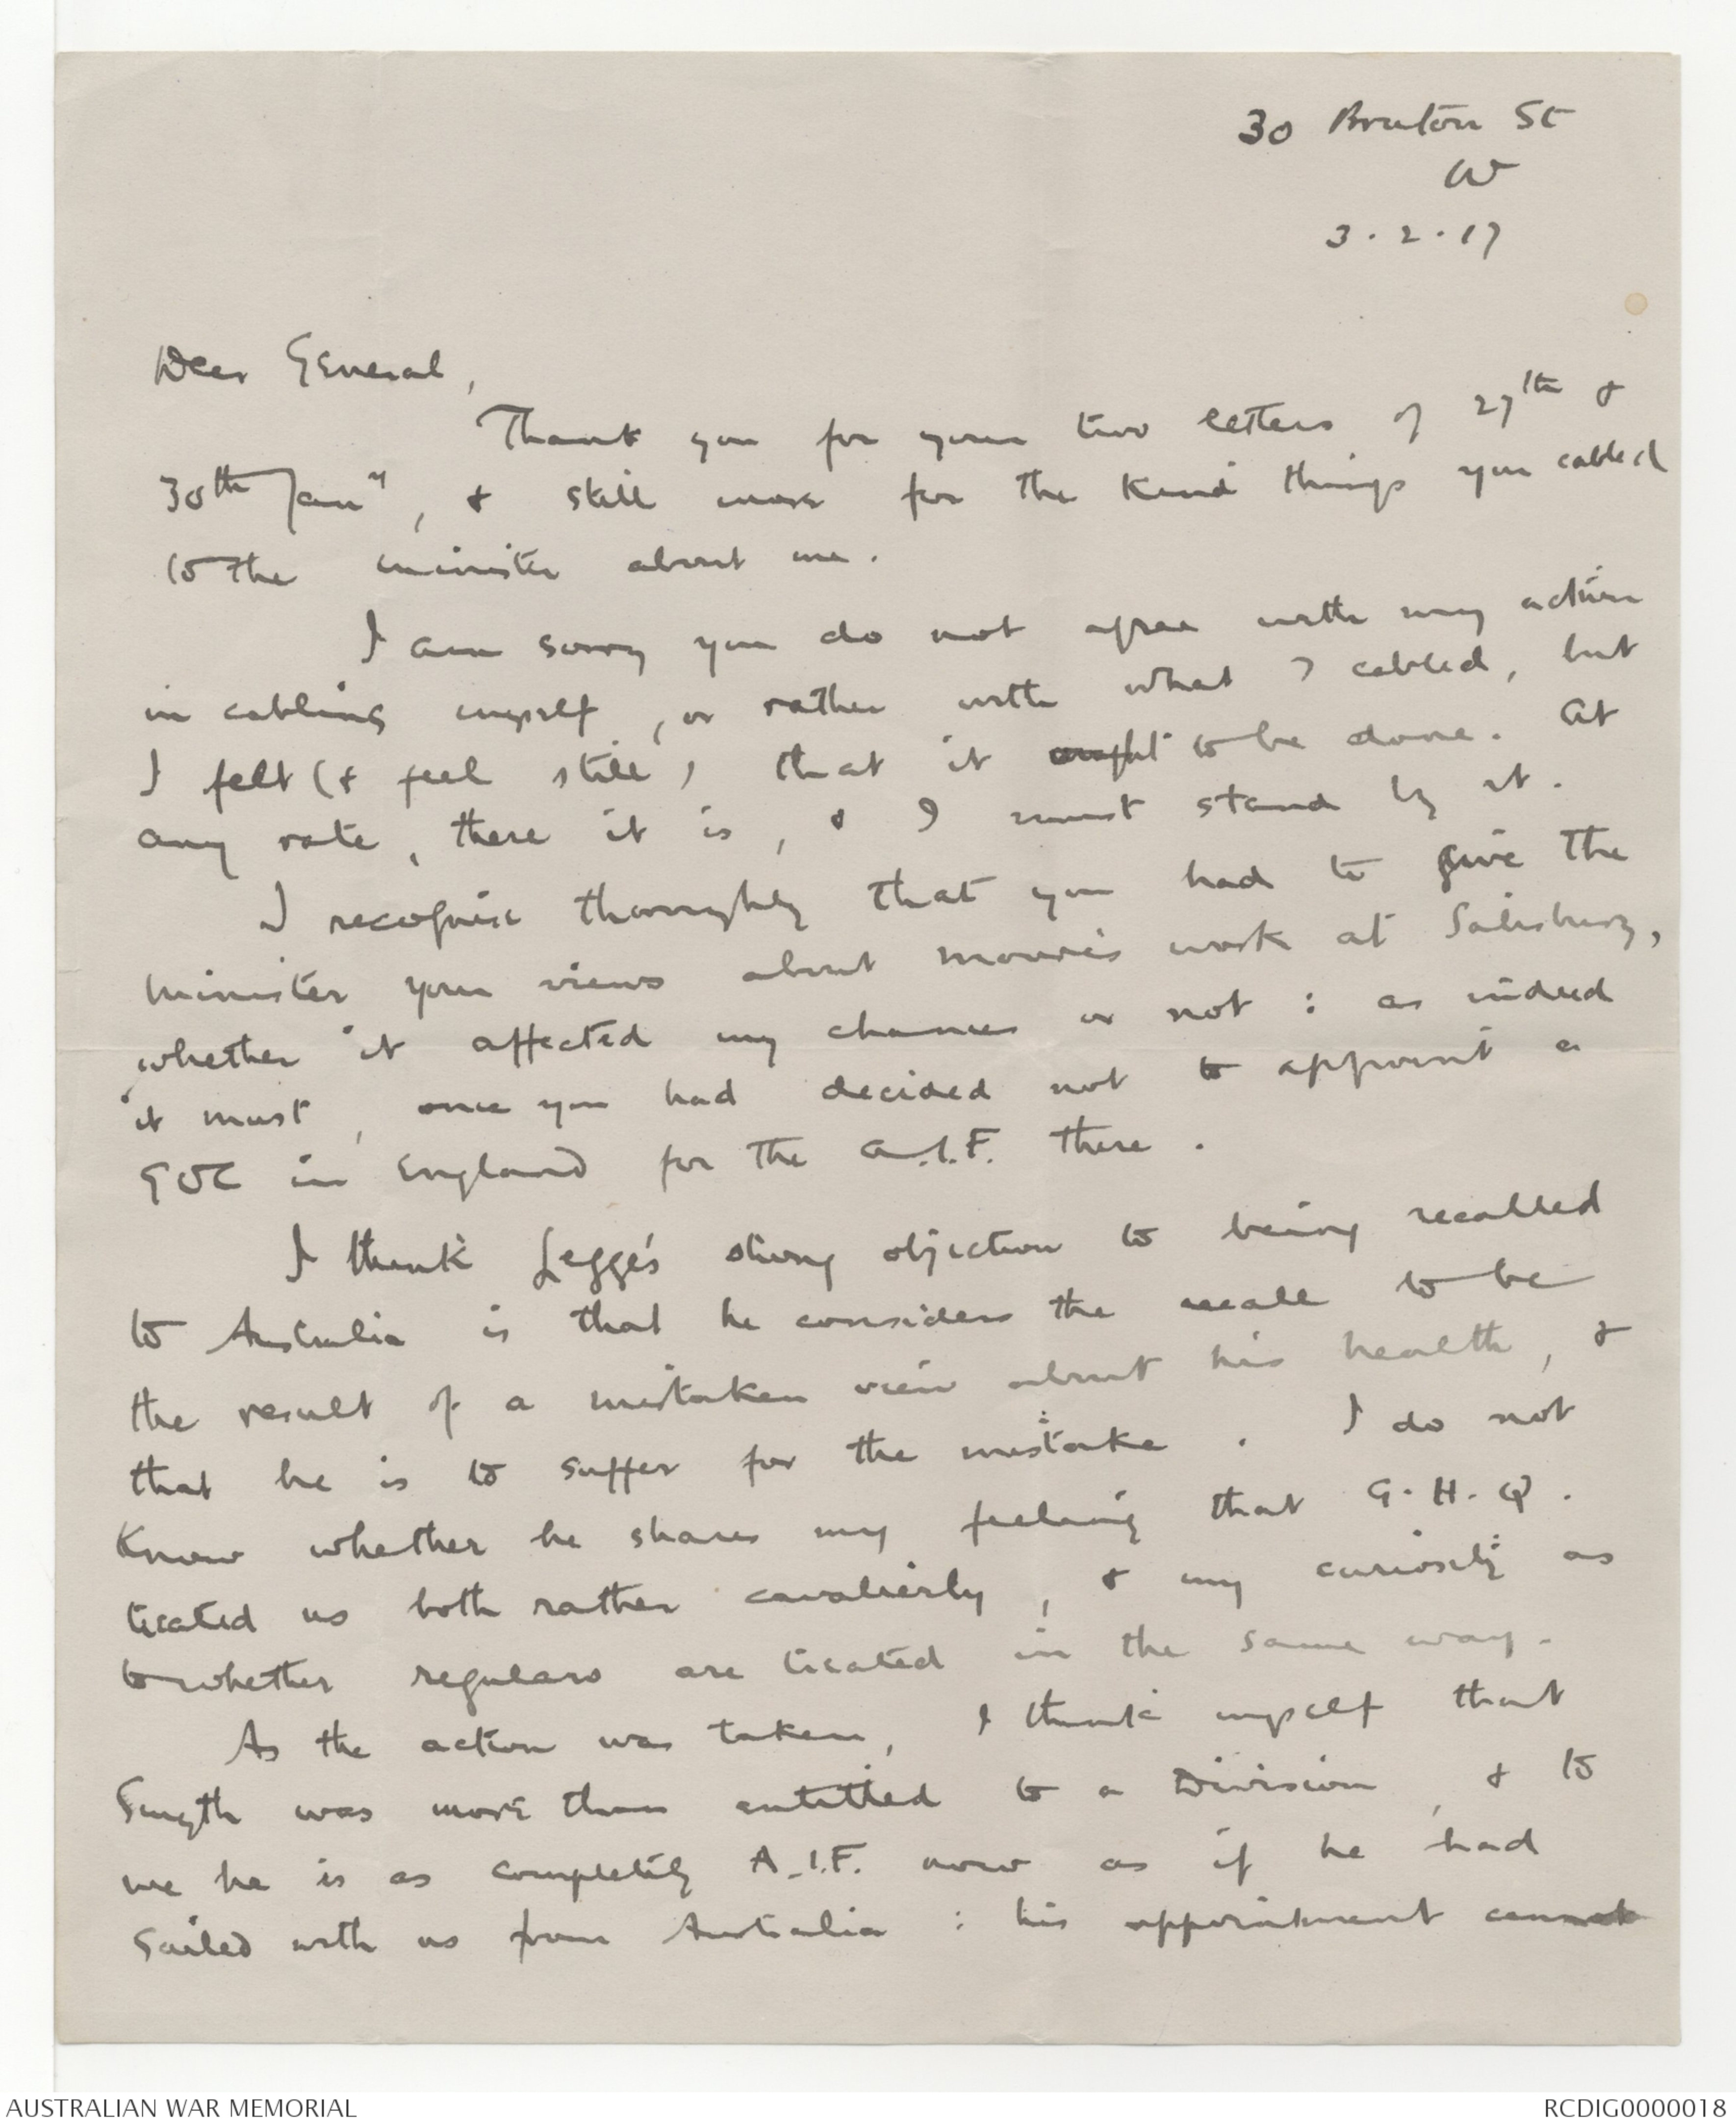 30 Bruton St
W
3.2.17
Dear General,
Thank you for your two letters of 27th &
30th Jany, & still more for the kind things you cabled
to the minister about me.
I am sorry you do not agree with my action
in cabling myself, or rather with what I cabled, but
I felt (& feel still) that it ought to be done. At
any rate, there it is, & I must stand by it.
I recognise thoroughly that you had to give the
minister your views about Moore's work at Salisbury,
whether it affected my chances or not: as indeed
it must, once you had decided not to appoint a
GOC in England for the A.I.F. there.
I think Legge's strong objection to being recalled
to Australia is that he considers the recall to be
the result of a mistaken view about his health, &
that he is to suffer for the mistake. I do not
know whether he shares my feeling that G.H.Q.
treated us both rather cavalierly, & my curiosity as
to whether regulars are treated in the same way.
As the action was taken, I think myself that
Smyth was more than entitled to a Division, & to
me he is as completely A.I.F. now as if he had
sailed with us from Australia: his appointment cannot
AUSTRALIAN WAR MEMORIAL
RCDIG0000018